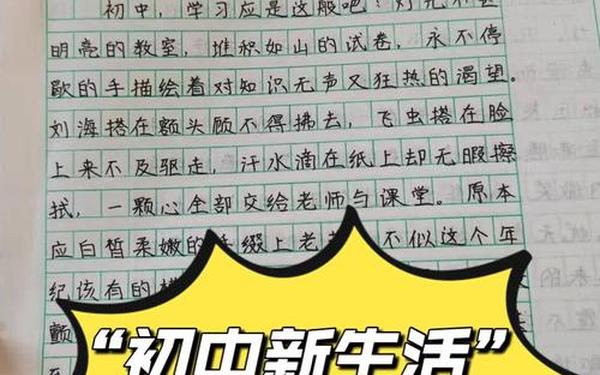 初中，学习应是这般吧？灯光不甚
明亮的教室，堆积如山的试卷，永不停
歇的手描绘着对知识无声又狂热的渴望。
刘海搭在额头顾不得拂去，飞虫搭在脸
上来不及驱走，汗水滴在纸上却无暇擦
拭，一颗心全部交给老师与课堂。原本
应白皙柔嫩的手缀上老 不似这个年
纪该有的
颤
“初中新生活”